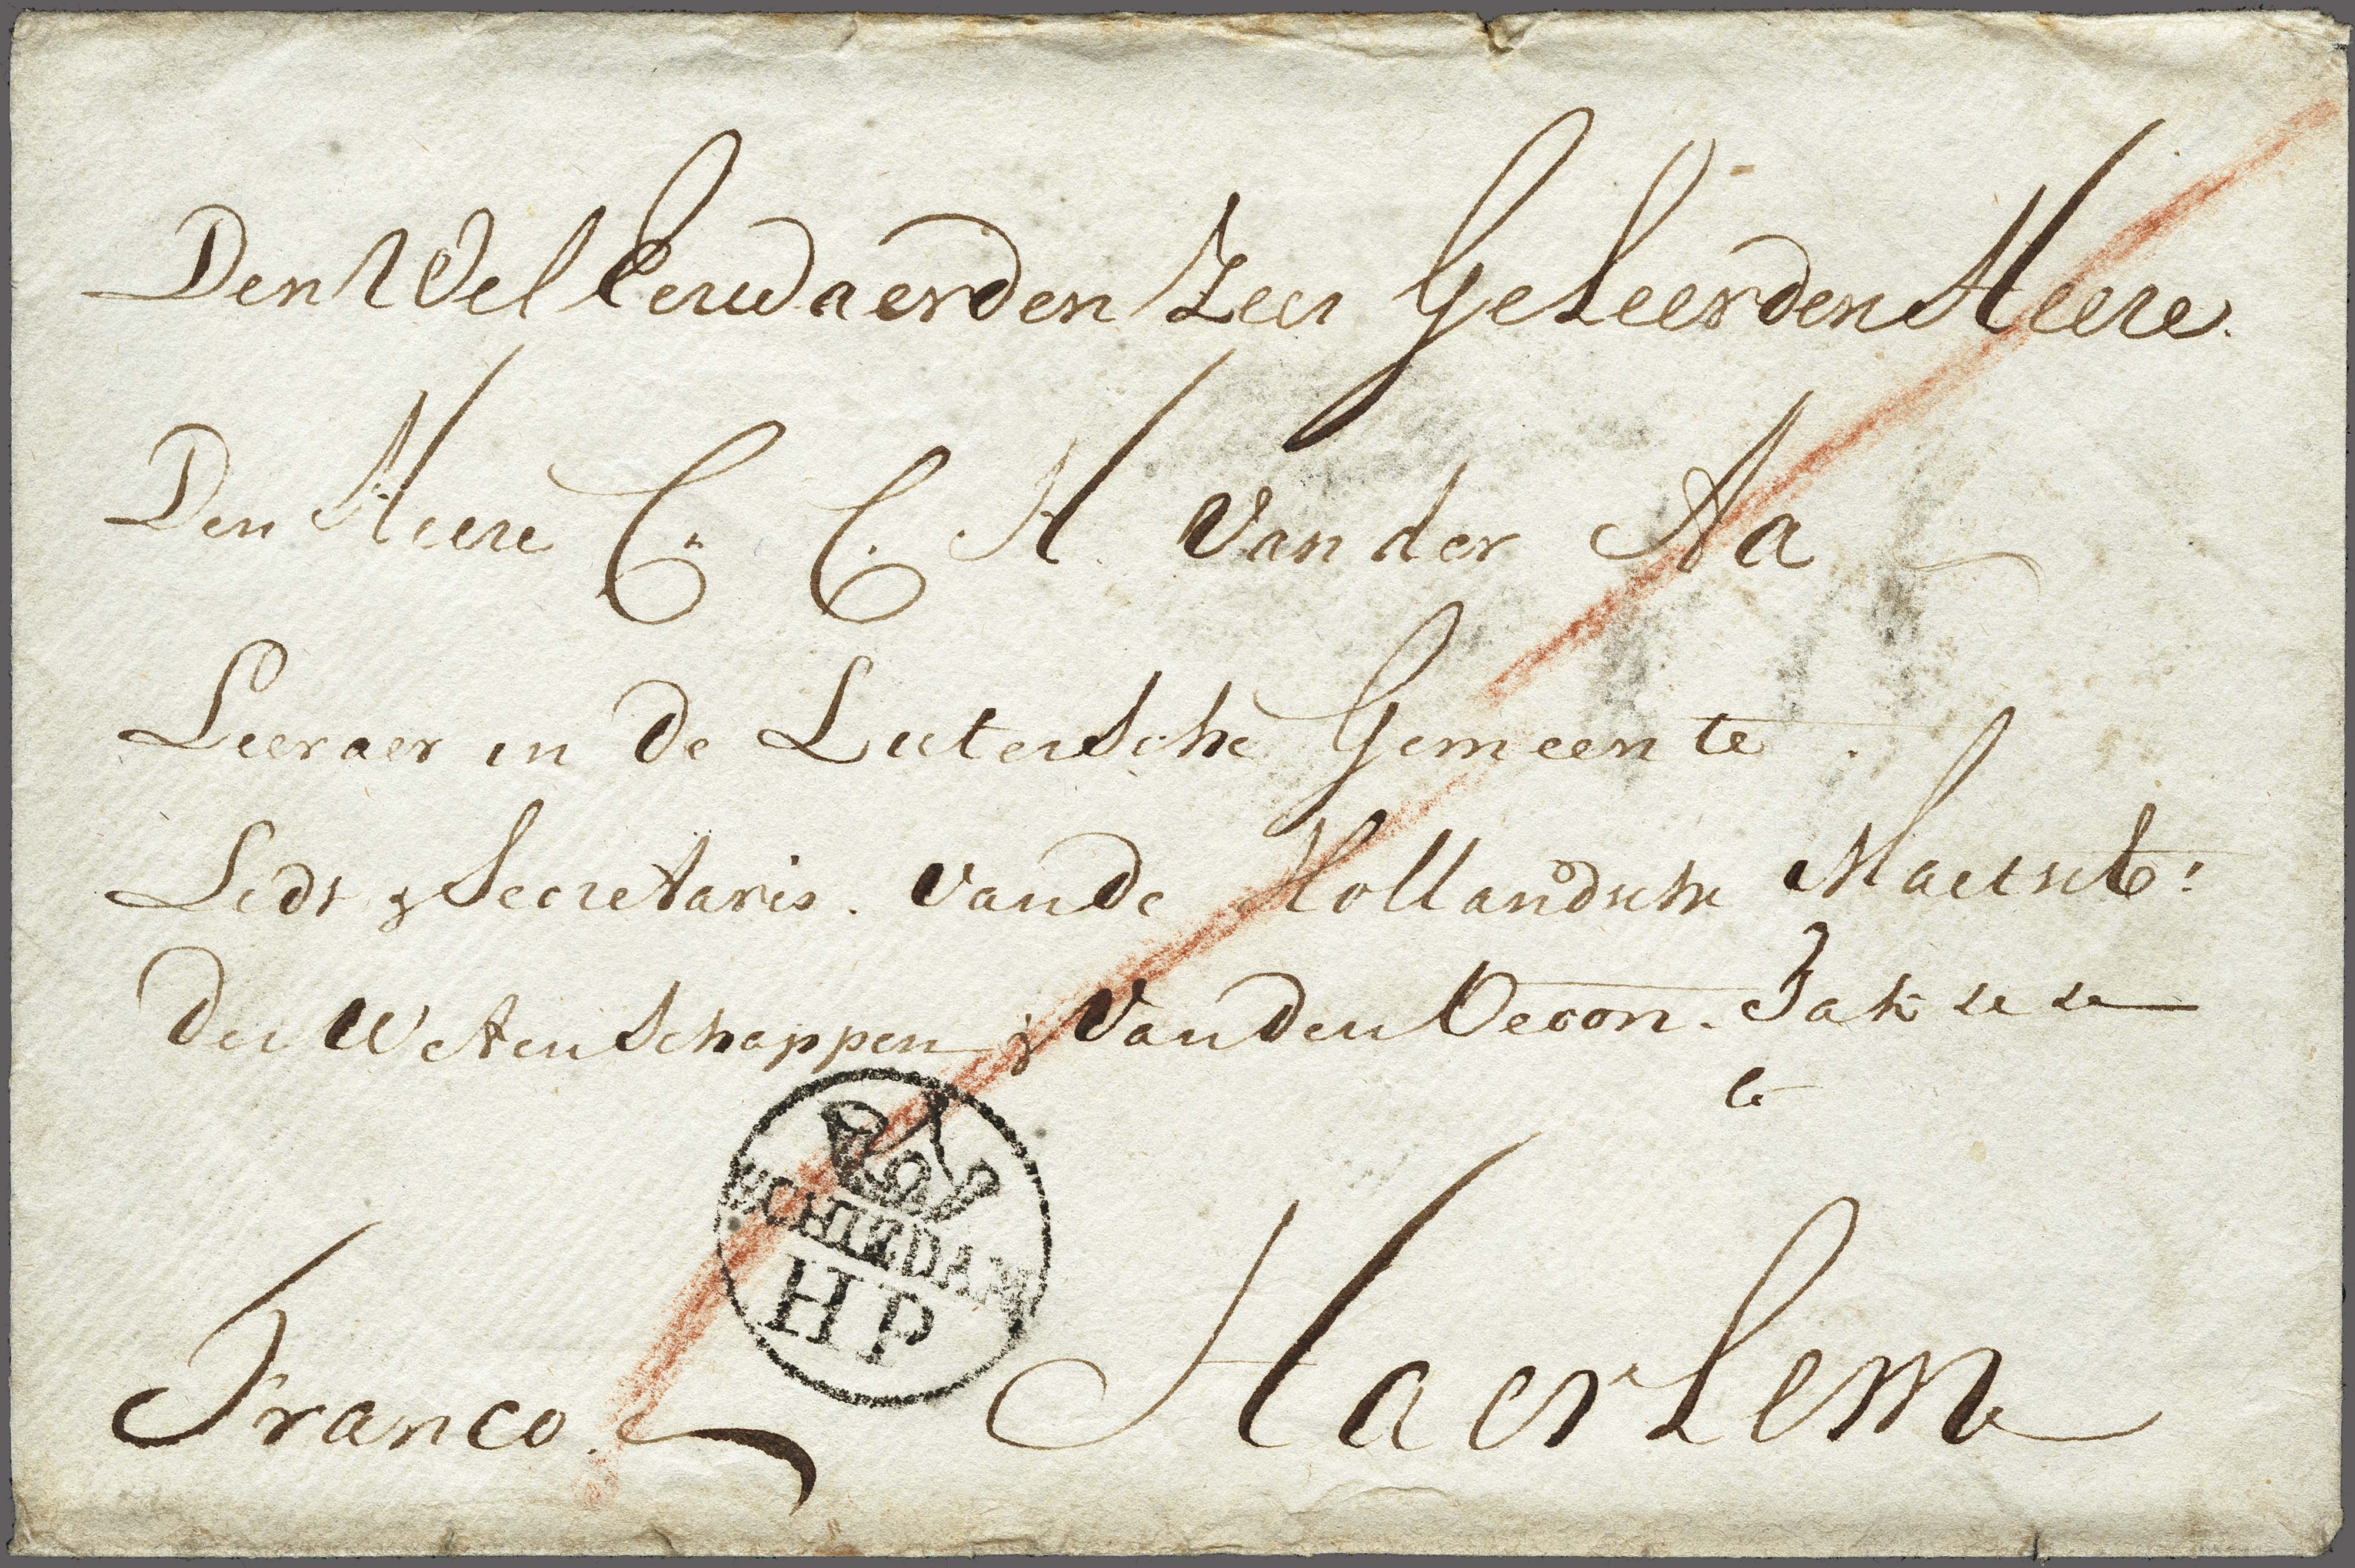 Den Wel Eerwaerden Zeer Geleerden Heere
Den Heere C. C. H. van der Aa
Leeraer in de Lutersche Gemeente.
Lidt & Secretaris. van de Hollandsche Maetsch:
der Wetenschappen & van den Oecon. Tak &c &c
te
SCHIEDAM
HP
Franco. Haerlem